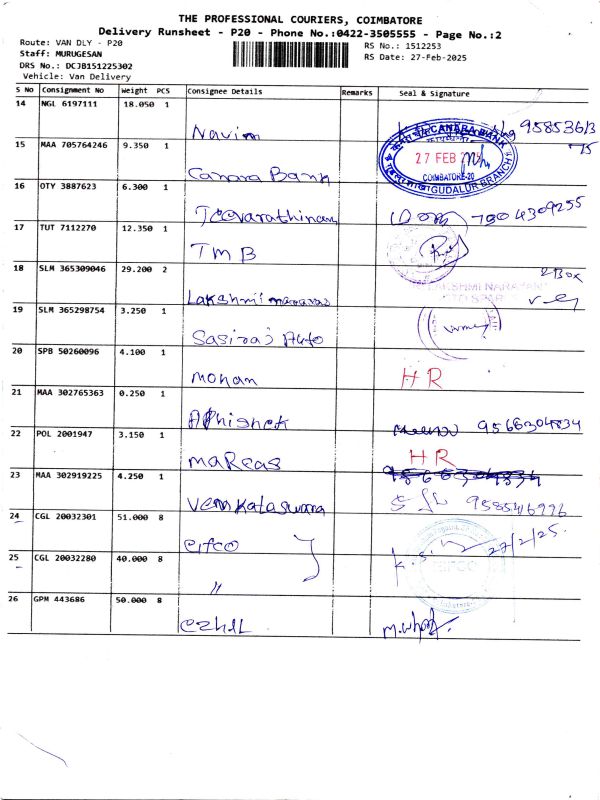 THE PROFESSIONAL COURIERS, COIMBATORE
Delivery Runsheet - P20 - Phone No.:0422-3505555 - Page No.:2
Route: VAN DLY - P20
RS No.: 1512253
Staff: MURUGESAN
RS Date: 27-Feb-2025
DRS No.: DCJB151225302
Vehicle: Van Delivery
S No Consignment No Weight PCS Consignee Details Remarks Seal & Signature
14 NGL 6197111 18.050 1
Navin 95853613
75
15 MAA 705764246 9.350 1
CANARA BANK
27 FEB
COIMBATORE-20
GUDALUR BRANCH
Canara Bank
16 OTY 3887623 6.300 1
17 TUT 7112270 12.350 1
TMB
18 SLM 365309046 29.200 2
2 Box
LAKSHMI NARAYANA
Lakshmi
19 SLM 365298754 3.250 1
Sasiraj Auto
20 SPB 50260096 4.100 1
mohan HR
21 MAA 302765363 0.250 1
Abhishek 9566304834
22 POL 2001947 3.150 1
HR
23 MAA 302919225 4.250 1
24 CGL 20032301 51.000 8
eifco 27/2/25.
25 CGL 20032280 40.000 8
〃
26 GPM 443686 50.000 8